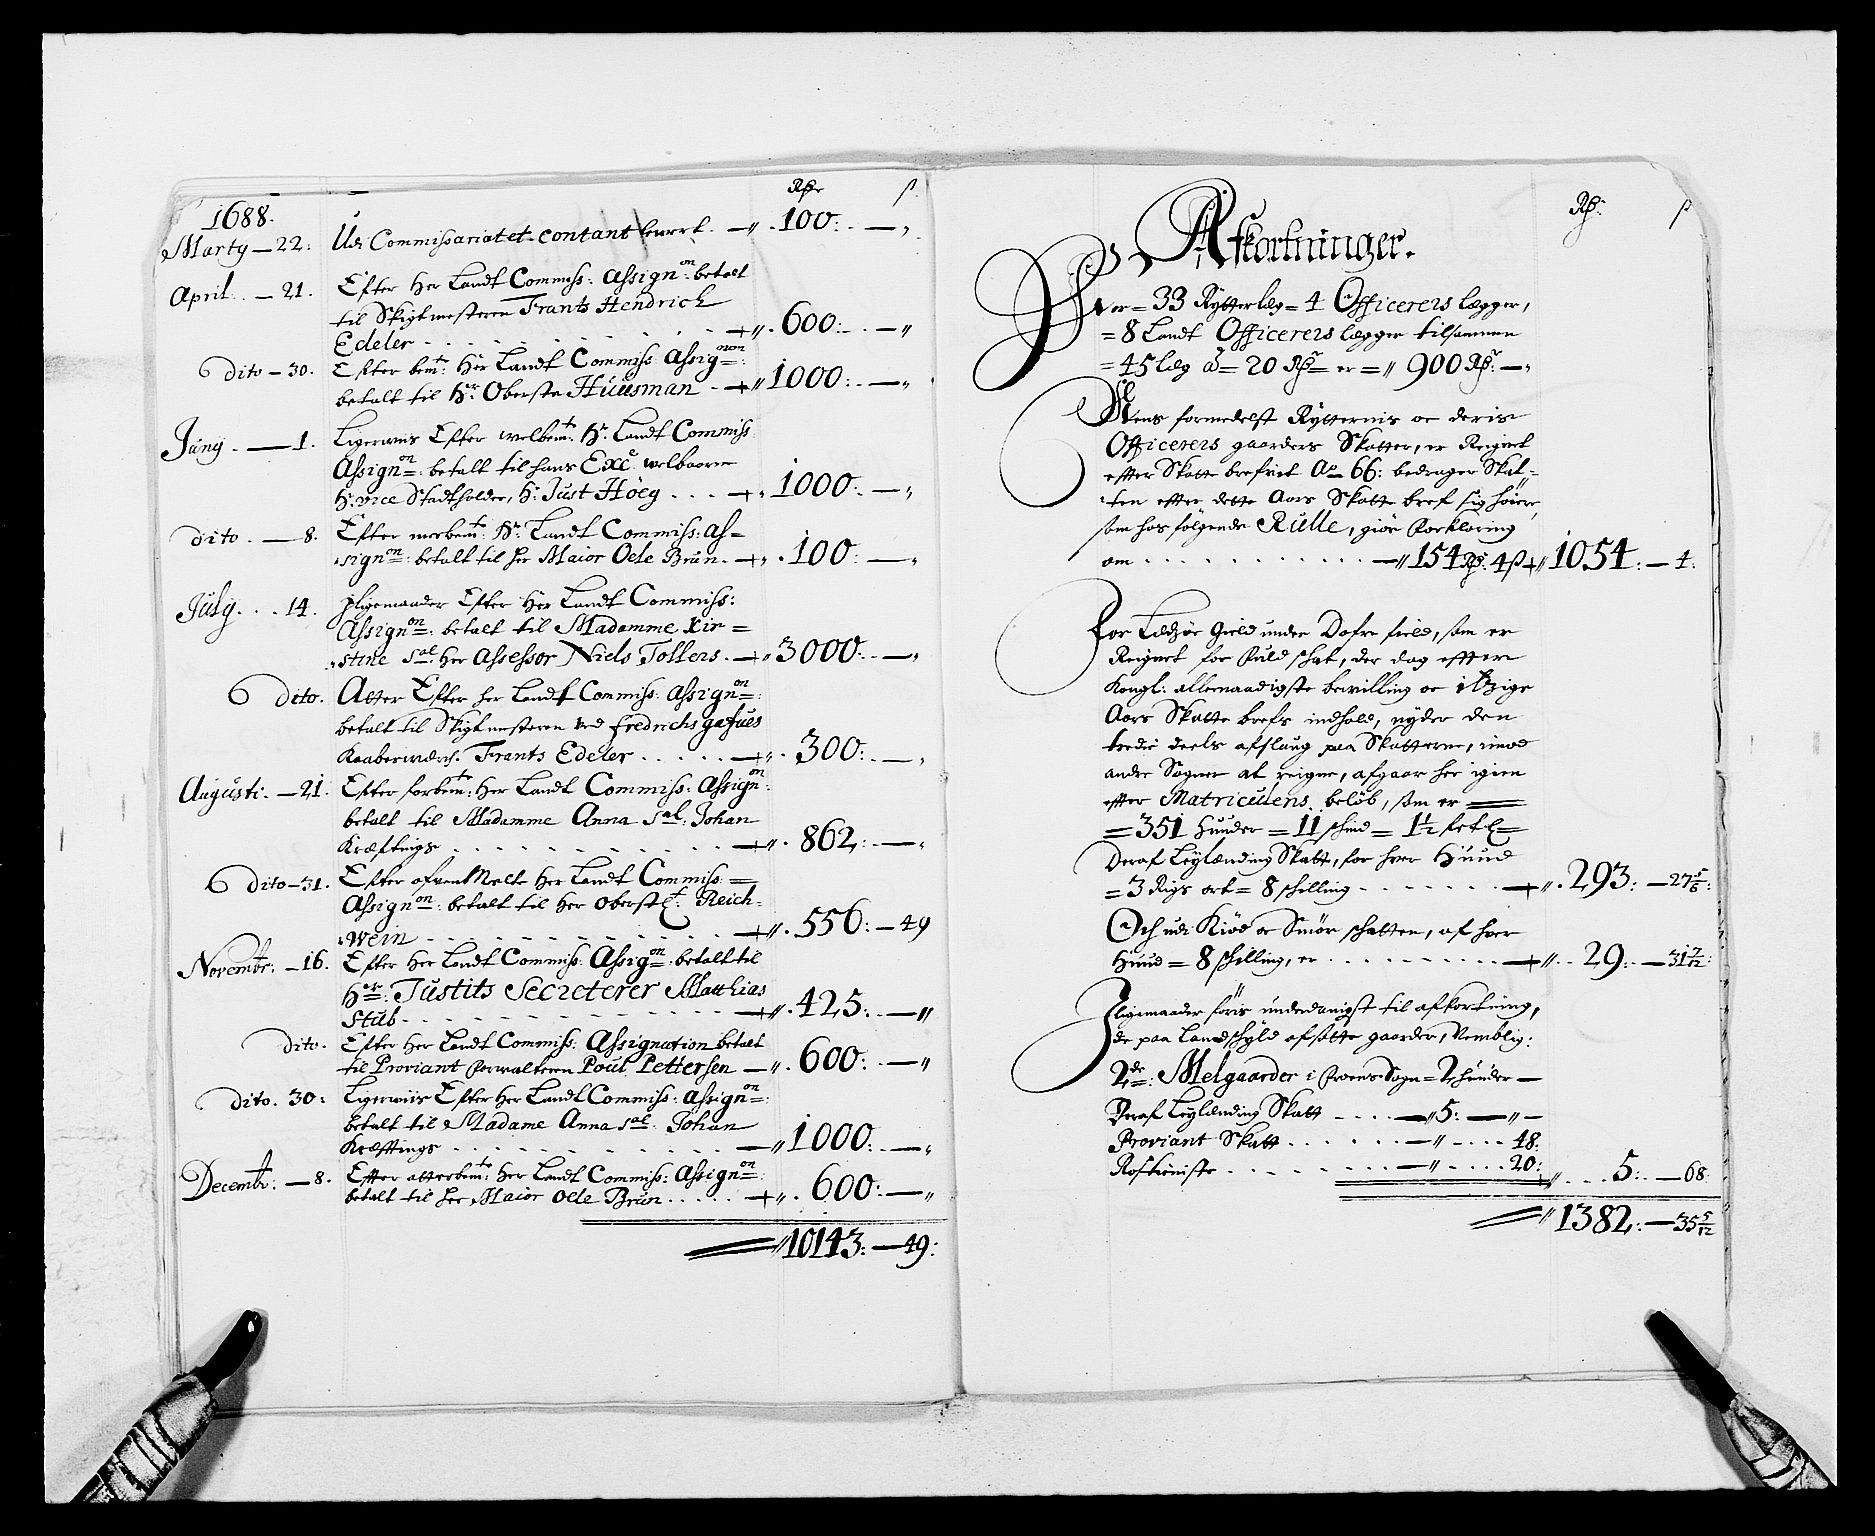 Rdr ß
1688.
Marty — 22: Udi Commissariatet contant levert. — 100: — „
April. — 21. Efter Her Landt Commiss: Assign^on: betalt
til Skigtmesteren Frantz Hendrich
Edeler . . . . . . — 600: — „
dito — 30. Efter bem^te: Her Landt Commiss Assig^non:
betalt til H^er: Oberste Huusman — 1000: — „
Juny. — 1. Ligerviis Efter welbem^te: H^r: Landt Commiss
Assign^on: betalt til hans Exc^e welbaarne
H: vice Stadtholder, H: Just Höeg . . . — 1000: — „
dito. — 8. Efter merbem^te: H^r: Landt Commiss: As=
sign^on: betalt til Her Maior Oele Brun. — 100: — „
July. . . 14. Jligemaader Efter Her Landt Commiss:
Assign^on: betalt til Madamme Kir=
stine Sal: Her Assessor Niels Tollers. — 3000: — „
dito. Atter Efter her Landt Commiss: Assign^on:
betalt til Skigtmesteren ved Fredrichs gafues
Kaaberverch. Frants Edeler . . . . . — 300: — „
Augusti. — 21. Efter forbem^te: Her Landt Commiss: Assign^on:
betalt til Madamme Anna Sal: Johan
Kræftings . . . . . . — 862: — „
dito — 31. Efter ofvenMelte Her Landt Commiss: =
Assign^on: betalt til Her Oberst L^t: Reich=
wein . . . . . . — 556: — 49
Novembr: — 16. Efter Her Landt Commiss: Assig^on: betalt til
H^er: Justits Secreterer Matthias
Stub . . . . . . — 425: — „
dito. Efter Her Landt Commiss: Assignation betalt
til Proviant forvalteren Poul Pettersen — 600: — „
dito. 30: Ligerwiis Efter Her Landt Commiss: Assign^on:
betalt til Madame Anna Sal: Johan
Kræfftings . . . . . . — 1000: — „
Decembr. — 8. Effter atterbem^te: Her Landt Commiss: Assign^on:
betalt til Her Maior Oele Brun . . . . . — 600: — „
10143: — 49:
Rdr: ß
Afkortninger.
For = 33 Rytterlæg = 4 Officerers lægger,
= 8 Landt Officerers lægger tilsammen
= 45 læg à = 20 Rdr er = 900 Rdr: — „
Mens formedelst Rytternis oc deris
Officerers gaarders Skatter, er Reignet
effter Skatte brefvet A^o 66: bedrager Skat=
ten effter dette Aars Skatte bref sig höiere,
som hos følgende Rulle, giør forklaring
om . . . . . . — 154 Rdr: 4 ß 1054: — 4:
For Lædsøe Gield under Dofre field, som er
Reignet for fuld schat, der dog effter
Kongl: allernaadigste bewilling oc itzige
Aars Skatte brefs indhold, nyder den
tredie deels afslaug paa Skatterne, imod
andre Sogner at reigne, afgaar her igien
effter Matriculens beløb, som er =
= 351 Huuder = 11 schind = 1½ fetl =
Deraf Leylænding Skatt, for hver Huud
= 3 Rigs ort = 8 schilling . . . . . — 293: — 27 5/8:
Och udi Kiød oc Smør schatten, af hver
Huud = 8 schilling, er . . . . . . — 29: — 31 7/12:
Jligemaader føris underdanigst til afkortning,
de paa Landschyld afsatte gaarder, Nemblig:
2^de: Melgaarder i froens Sogn = 2 huuder —
Deraf Leylænding Skatt — 5: — „ —
Proviant Skatt . . . . . — „ — . . . 48:
Rostieniste . . . . . . — „ — . . . 20: . . . 5: — 68:
1382: — 35 5/12